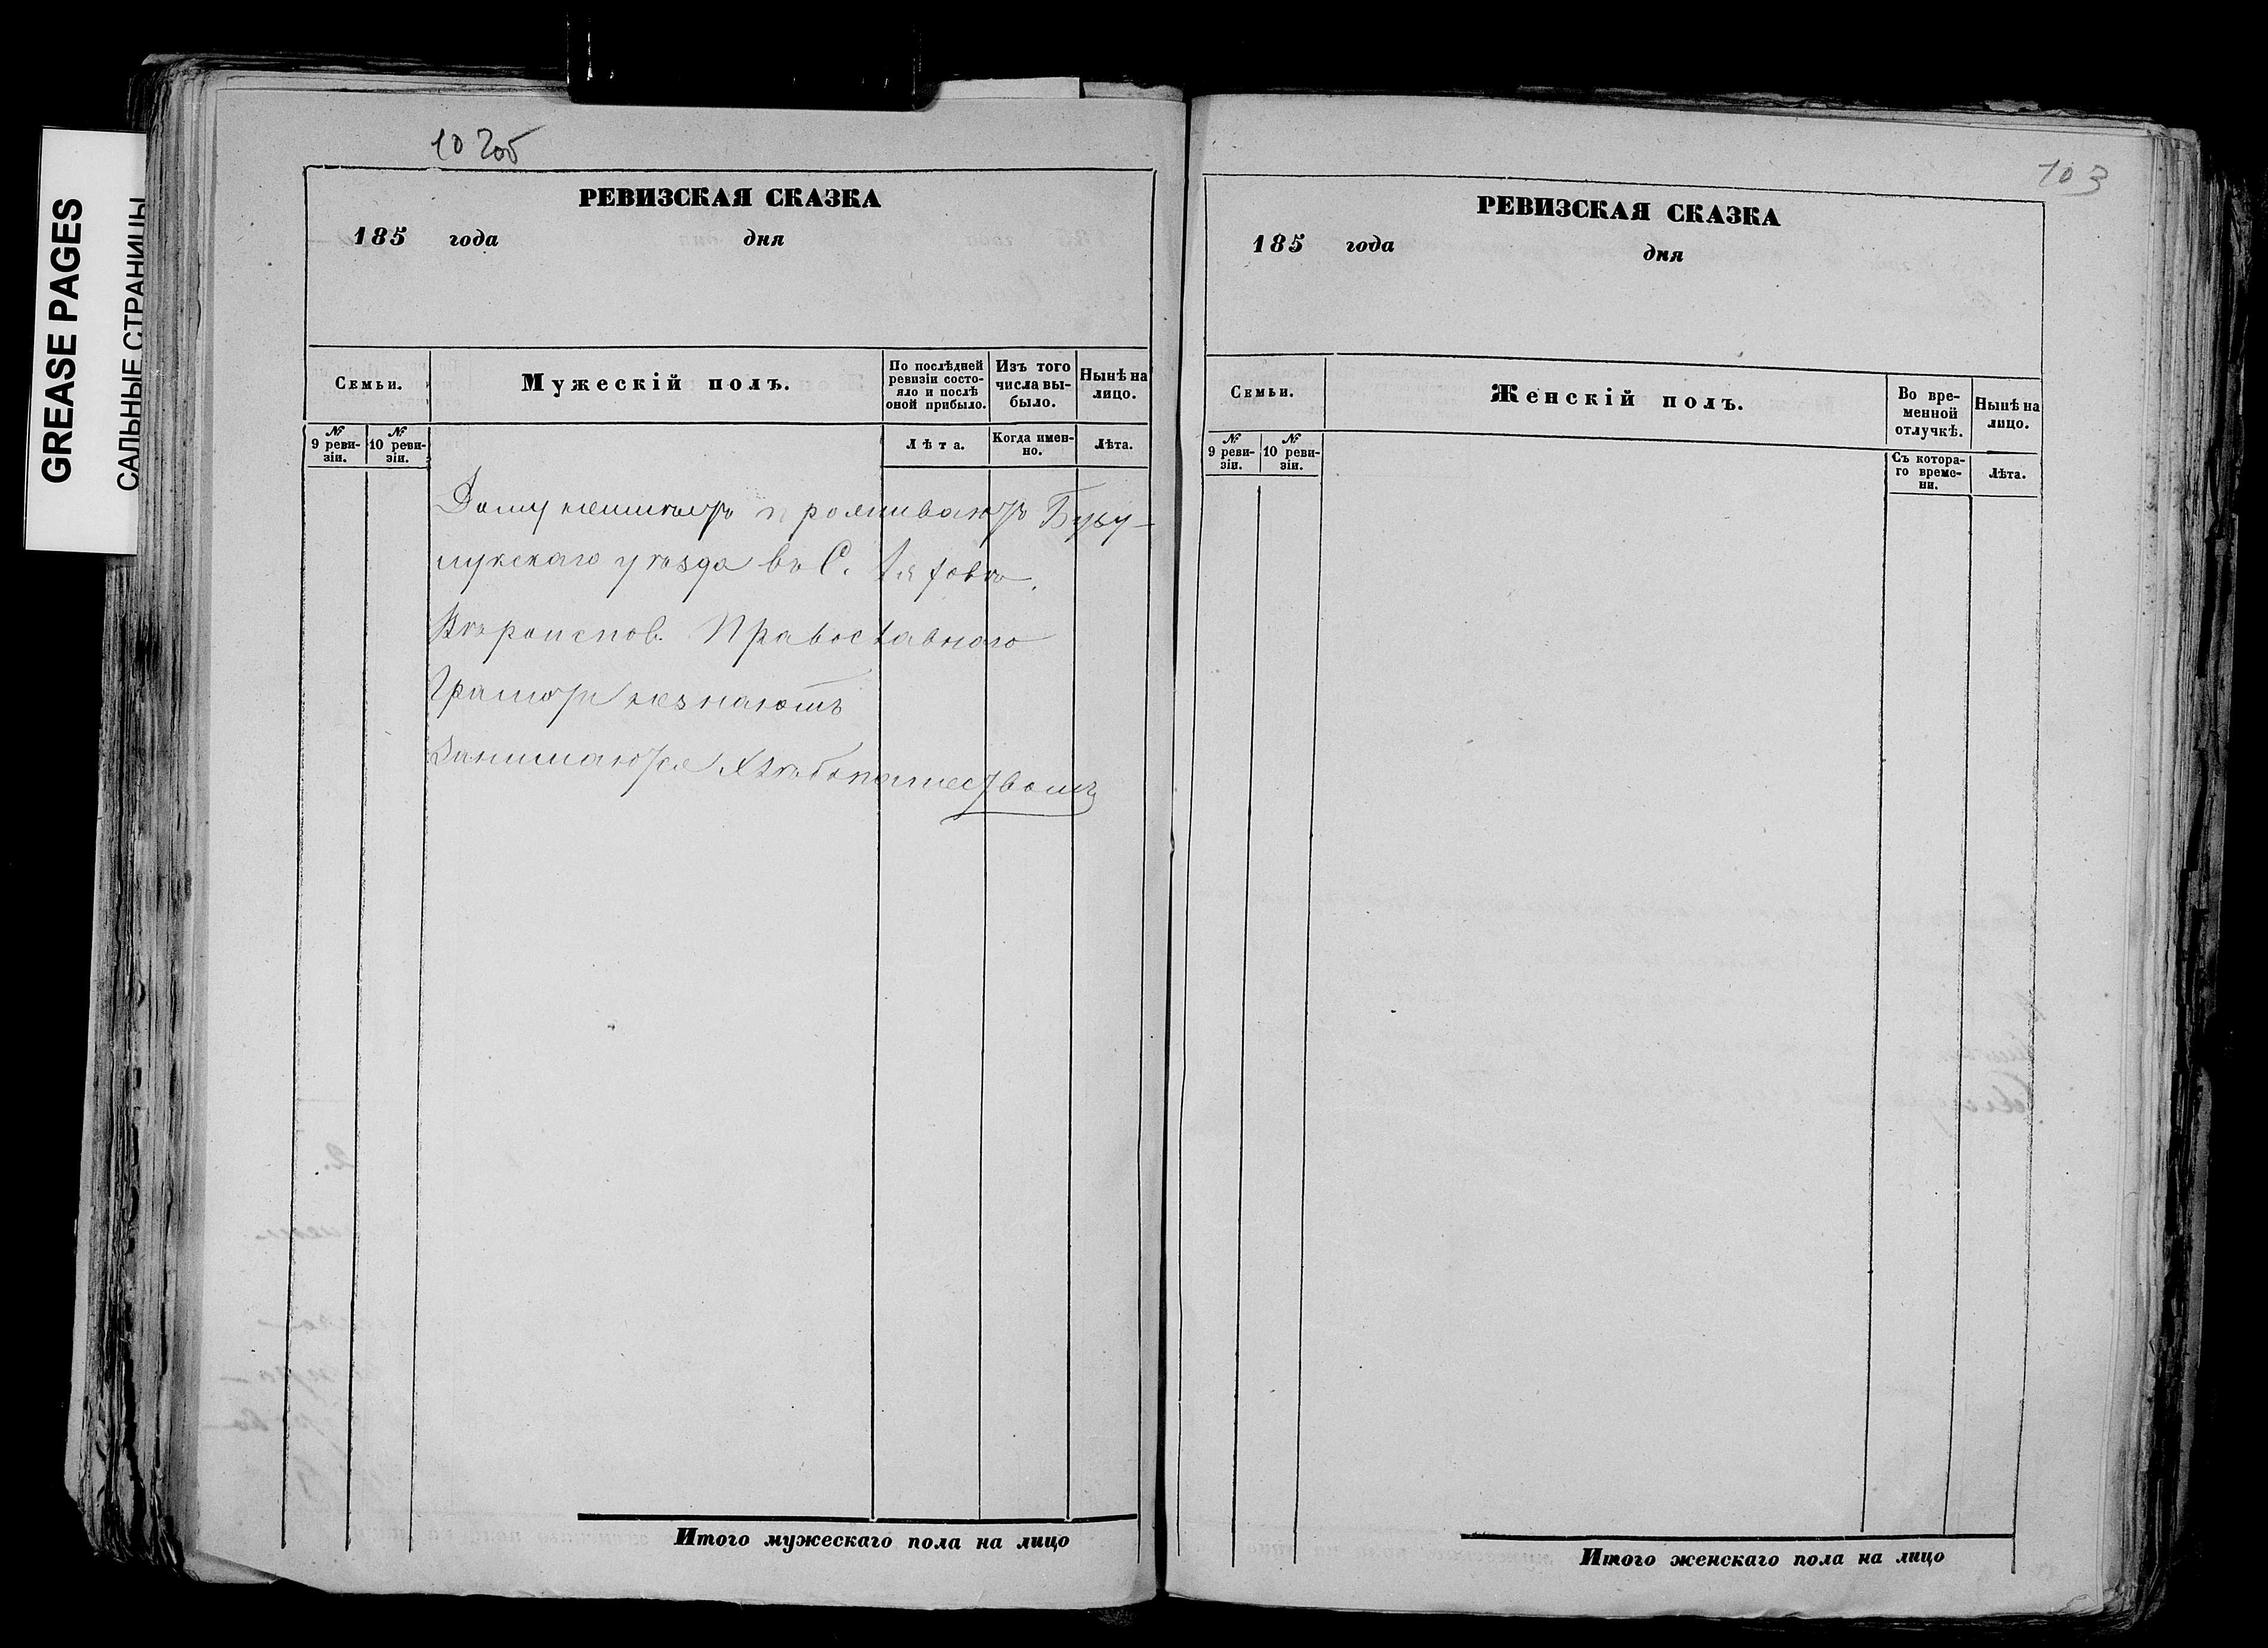 GREASE PAGES
САЛЬНЫЕ СТРАНИЦЫ
102об
РЕВИЗСКАЯ СКАЗКА
185 года дня
Семьи.
Мужескій полъ.
По послѣдней ревизіи состояло и послѣ оной прибыло.
Изъ того числа выбыло.
Нынѣ на лицо.
№ 9 ревизіи.
№ 10 ревизіи.
Лѣта.
Когда именно.
Лѣта.
Дому неимѣютъ проживаютъ Бугу-
лужскаго уѣзда въ С.
Вѣроиспов. Православнаго
Грамотѣ незнаютъ
Занимаются Хлѣбопашествомъ
Итого мужескаго пола на лицо
103
РЕВИЗСКАЯ СКАЗКА
185 года дня
Семьи.
Женскій полъ.
Во временной отлучкѣ.
Нынѣ на лицо.
№ 9 ревизіи.
№ 10 ревизіи.
Съ котораго времени.
Лѣта.
Итого женскаго пола на лицо